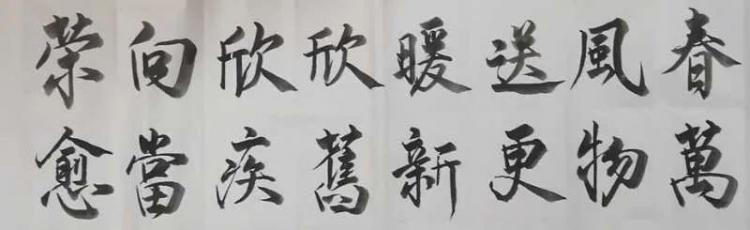 春風送暖欣欣向榮
萬物更新舊疾當愈